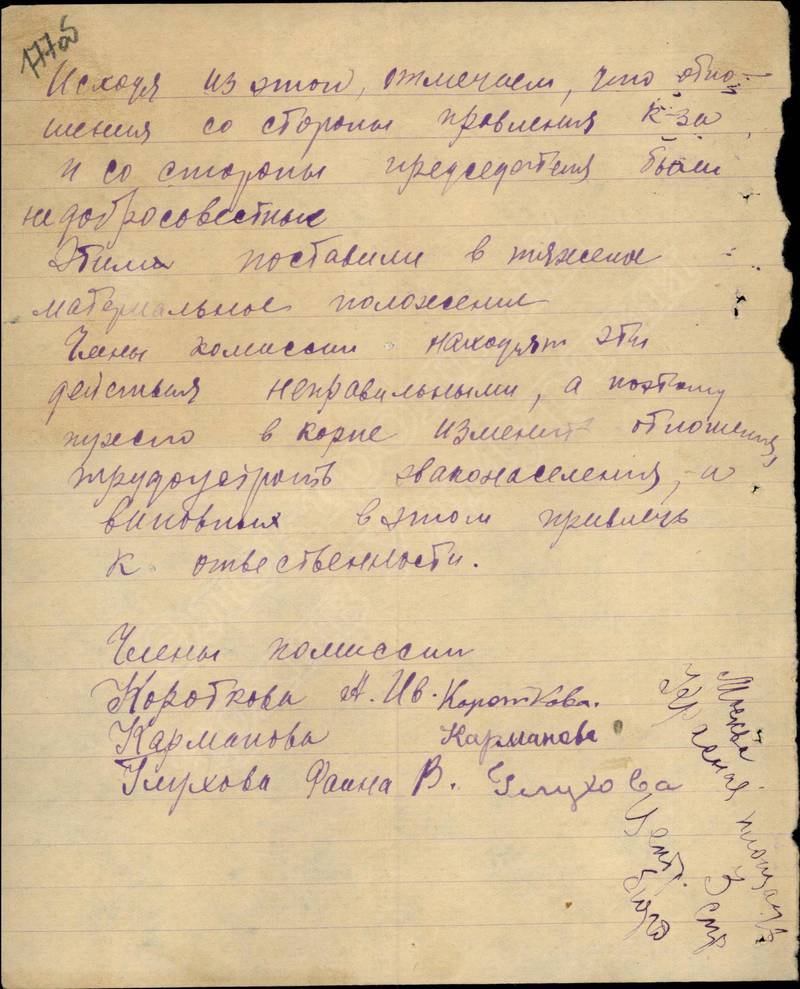 177об
Исходя из этого, отмечаем, что отно-
шения со стороны правления к-за
и со стороны председателя были
недобросовестные
Этими поставили в тяжелое
материальное положения
Члены комиссии находят эти
действия неправильными, а поэтому
нужно в корне изменить отношения,
трудоустроить эваконаселения, а
виновных в этом привлечь
к отвественности.
Члены комиссии
Короткова А. Ив. Короткова.
Карманова Карманова
Глухова Фаина В. Глухова
Москва
Красная площадь
3 стр
Центр.
Бюро